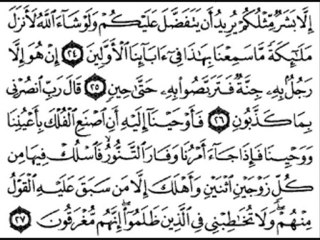 إِلَّا بَشَرٌ مِّثْلُكُمْ يُرِيدُ أَن يَتَفَضَّلَ عَلَيْكُمْ وَلَوْ شَآءَ ٱللَّهُ لَأَنزَلَ
مَلَٰٓئِكَةً مَّا سَمِعْنَا بِهَٰذَا فِىٓ ءَابَآئِنَا ٱلْأَوَّلِينَ ٢٤ إِنْ هُوَ إِلَّا
رَجُلٌۢ بِهِۦ جِنَّةٌ فَتَرَبَّصُوا۟ بِهِۦ حَتَّىٰ حِينٍ ٢٥ قَالَ رَبِّ ٱنصُرْنِى
بِمَا كَذَّبُونِ ٢٦ فَأَوْحَيْنَآ إِلَيْهِ أَنِ ٱصْنَعِ ٱلْفُلْكَ بِأَعْيُنِنَا
وَوَحْيِنَا فَإِذَا جَآءَ أَمْرُنَا وَفَارَ ٱلتَّنُّورُ فَٱسْلُكْ فِيهَا مِن
كُلٍّ زَوْجَيْنِ ٱثْنَيْنِ وَأَهْلَكَ إِلَّا مَن سَبَقَ عَلَيْهِ ٱلْقَوْلُ
مِنْهُمْ وَلَا تُخَٰطِبْنِى فِى ٱلَّذِينَ ظَلَمُوٓا۟ إِنَّهُم مُّغْرَقُونَ ٢٧